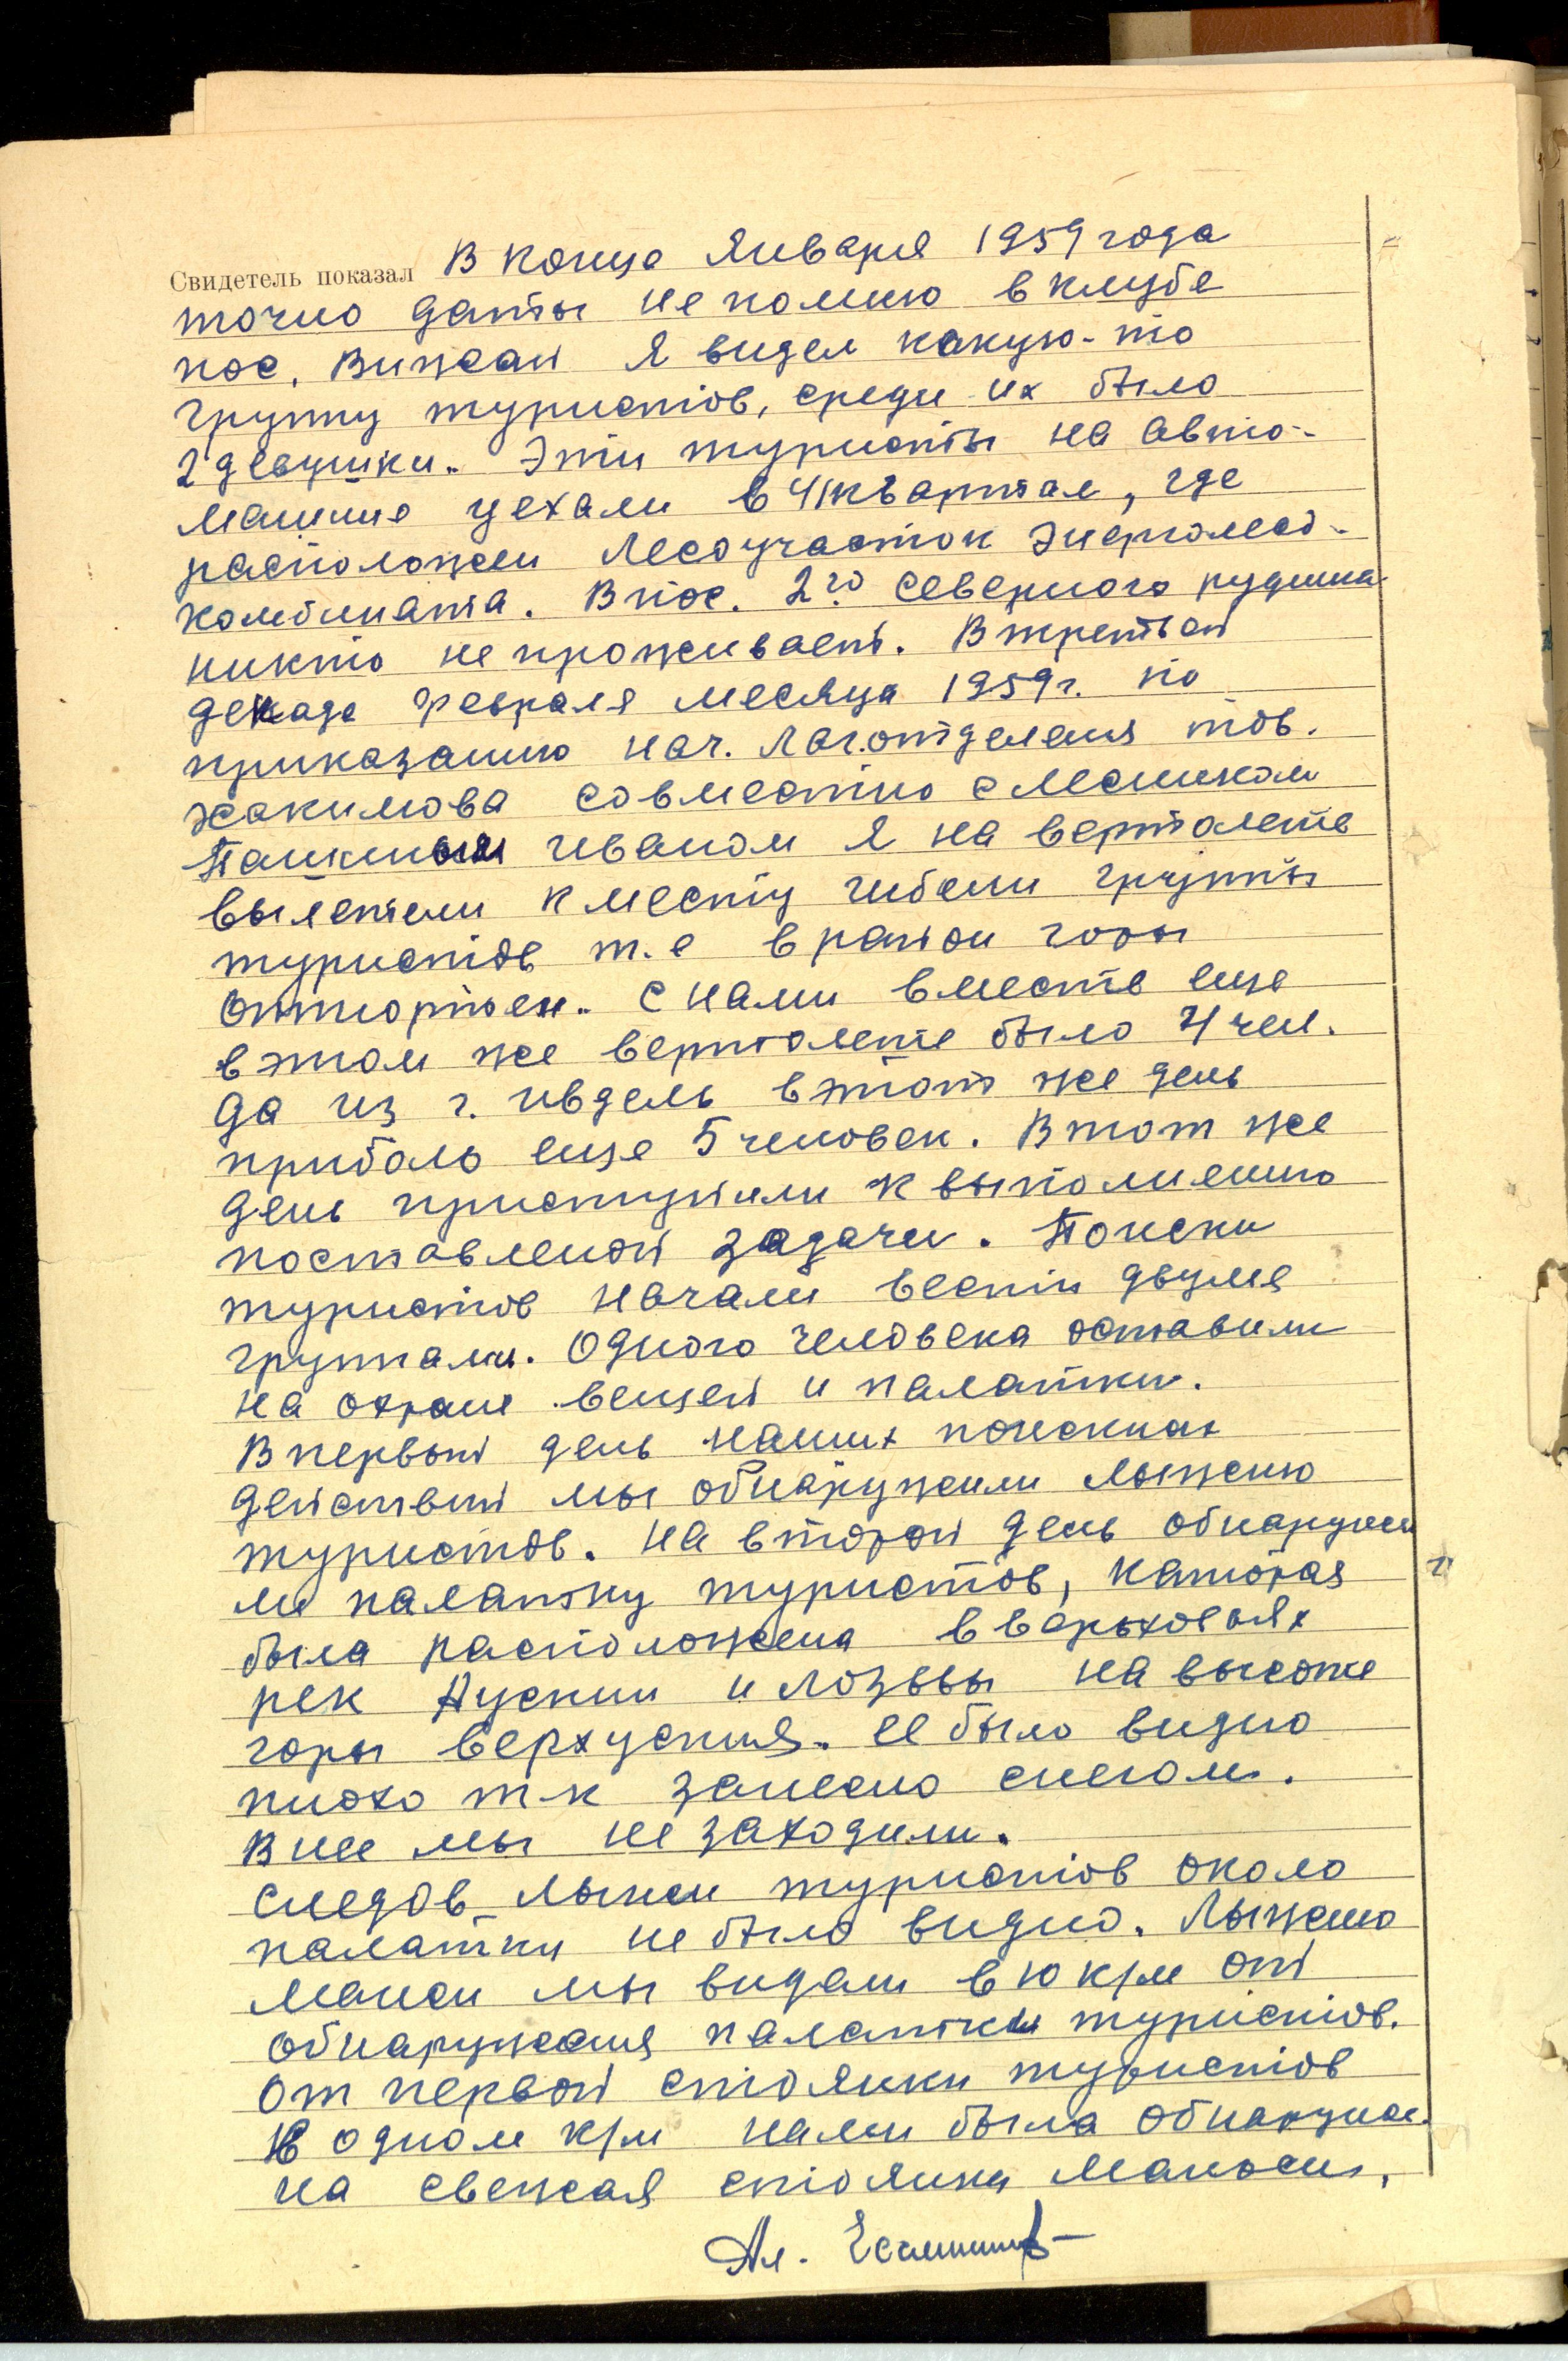 Свидетель показал В конце Января 1959 года
точно даты не помню в клубе
пос. Вижай Я видел какую-то
группу туристов, среди их было
2 девушки. Эти туристы на авто-
машине уехали в 41 квартал, где
расположен Лесоучасток Энерголесо-
комбината. В пос. 2го Северного рудника
никто не проживает. В третьей
декаде февраля месяца 1959 г. по
приказанию нач. Лаг.отделения тов.
Хакимова совместно с Лесником
Пашиным Иваном Я на вертолете
вылетели к месту гибели группы
туристов т.е в район горы
Оттортен. С нами вместе еще
в этом же вертолете было 4 чел.
да из г. Ивдель в этот же день
прибыло еще 5 человек. В тот же
день приступили к выполнению
поставленой задачи. Поиски
туристов начали вести двумя
группами. Одного человека оставили
на охране вещей и палатки.
В первый день наших поискных
действий мы обнаружили лыжню
туристов. На второй день обнаружи
ли палатку туристов, каторая
была расположена в верьховьях
рек Ауспии и Лозьвы на высоте
горы Верхуспия. Ее было видно
плохо т-к занесло снегом.
В нее мы не заходили.
Следов лыжи туристов около
палатки не было видно. Лыжню
Манси мы видали в 10 к/м от
обнаружения палатки туристов.
От первой стоянки туристов
в одном к/м нами была обнаруже-
на свежая стоянка Маньси,
Ал.